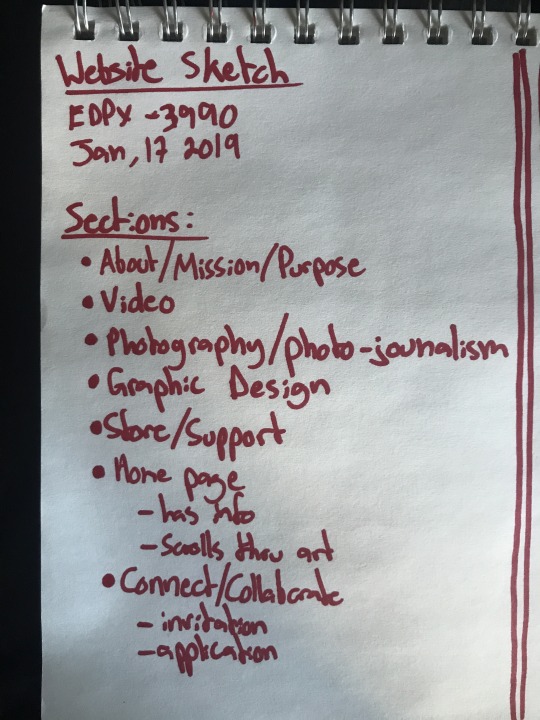 Website Sketch
EDPX -3990
Jan, 17 2019
Sections:
• About/Mission/Purpose
• Video
• Photography/photo-jounalism
• Graphic Design
• Store/Support
• Home page
- has info
- Scrolls thru art
• Connect/Collaborate
- invitation
- application